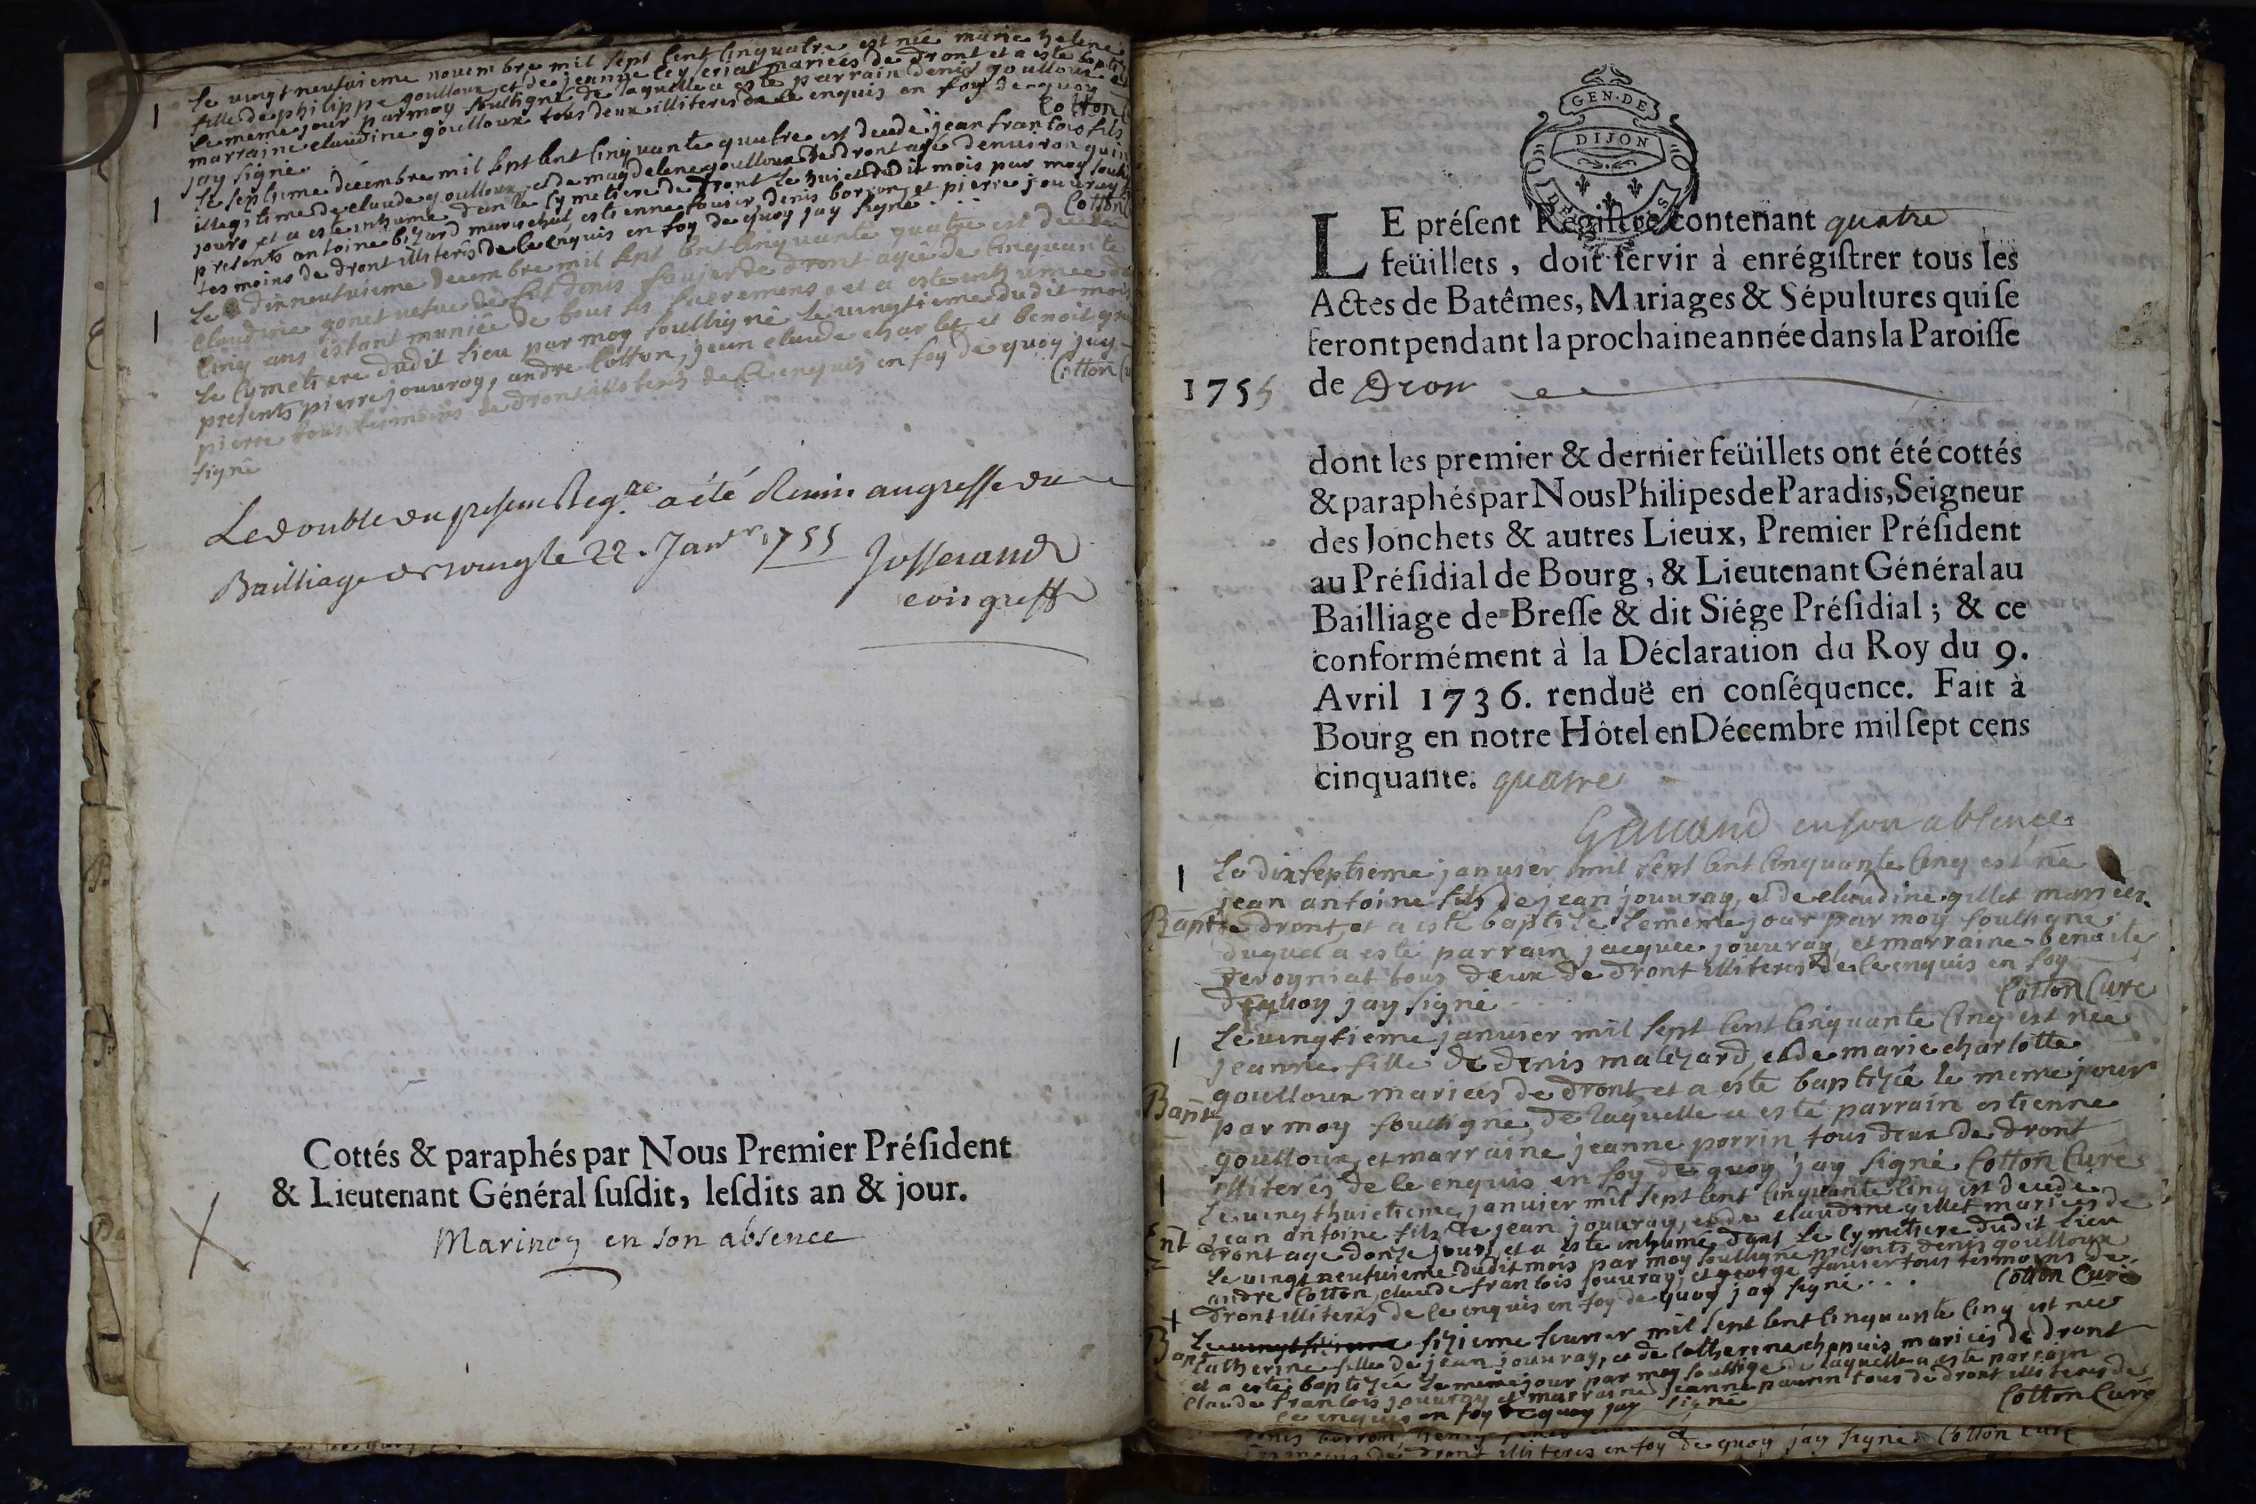 Le vingt neufvieme novembre mil sept cent cinquatre est née marie helene
fille de philippe goulloux et de jeanne mariées de dront et a este
le meme jour par moy soubsigné de laquelle a este parrain denis goulloux et
marraine claudine goulloux tous deux illiteres de ce enquis en foy de quoy
jay signé
Cotton
Le septieme decembre mil sept cent cinquante quatre est decede jean francois fils
illegitime de claude goulloux et de magdelene goulloux de dront agé denviron
jours et a este inhume dans le cymetiere de dront le huict dudit mois par moy
presents antoine bizard mareschal, estienne denis borron, et pierre jouuray
tesmoins de dront illiterés de ce enquis en foy de quoy jay signé . . .
Cotton
Le dixneufuieme decembre mil sept cent cinquante quatre est
claudine gonet vefue de fut denis de dront agée de cinquante
cinq ans estant muniée de tous ses sacremens, et a este enhumee
le cymetiere dudit lieu par moy soubsigné le vingtieme dudit mois
presents pierre jouuray, andre Cotton, jean claude charlet et benoit
pierre tous tesmoins de dront illiterés de ce enquis en foy de quoy jay
signé
Cotton
Le double du present Regre a été Remis au greffe du
Bailliage de bourg le 22. Janvr 1755 Josserand
Cottés & paraphés par Nous Premier Préſident
& Lieutenant Général ſuſdit, leſdits an & jour.
Marinon en son absence
GEN·DE
DIJON
LE préſent Regiſtre contenant quatre
feüillets, doit ſervir à enrégiſtrer tous les
Actes de Batêmes, Mariages & Sépultures qui ſe
feront pendant la prochaine année dans la Paroiſſe
1755 de Dron
dont les premier & dernier feüillets ont été cottés
& paraphés par Nous Philipes de Paradis, Seigneur
des Jonchets & autres Lieux, Premier Préſident
au Préſidial de Bourg, & Lieutenant Général au
Bailliage de Breſſe & dit Siége Préſidial; & ce
conformément à la Déclaration du Roy du 9.
Avril 1736. renduë en conſéquence. Fait à
Bourg en notre Hôtel en Décembre mil ſept cens
cinquante. quatre
en son absence
Le dixseptieme janvier mil sept cent cinquante cinq est né
jean antoine fils de jean jouuray, et de claudine gillet mariées
Bapt de dront, et a este baptizé le meme jour par moy soubsigné
duquel a esté parrain jacques jouuray, et marraine benoite
peroyniat tous deux de dront illiterés de ce enquis en foy
de quoy jay signé
Cotton Curé
Le vingtieme janvier mil sept cent cinquante cinq est née
jeanne fille de denis malezard, et de marie charlotte
goulloux mariées de dront, et a este baptizée le meme jour
Bapt par moy soubsigné, de laquelle a esté parrain estienne
goulloux, et marraine jeanne perrin tous deux de dront
illiterés de ce enquis en foy de quoy jay signé Cotton Curé
Le vingt huictieme janvier mil sept cent cinquante cinq est decede
jean antoine fils de jean jouuray, et de claudine gillet mariées de
Ent dront agé donze jours, et a este inhumé dans le cymetiere dudit lieu
le vingt neufuieme dudit mois par moy soubsigné presents denis goulloux
andre Cotton, claude francois jouuray, et george tous tesmoins de
dront illiterés de ce enquis en foy de quoy jay signé . . . Cotton Curé
Le sizieme feurier mil sept cent cinquante cinq est née
Bapt catherine fille de jean jouuray, et de catherine chapuis mariées de dront
et a este baptizée le meme jour par moy soubsigé de laquelle a este parrain
claude francois jouuray et marraine jeanne perrin tous de dront illiterés de
ce enquis en foy de quoy jay signé
Cotton Curé
denis borron
tesmoins de dront illiterés en foy de quoy jay signé Cotton Curé